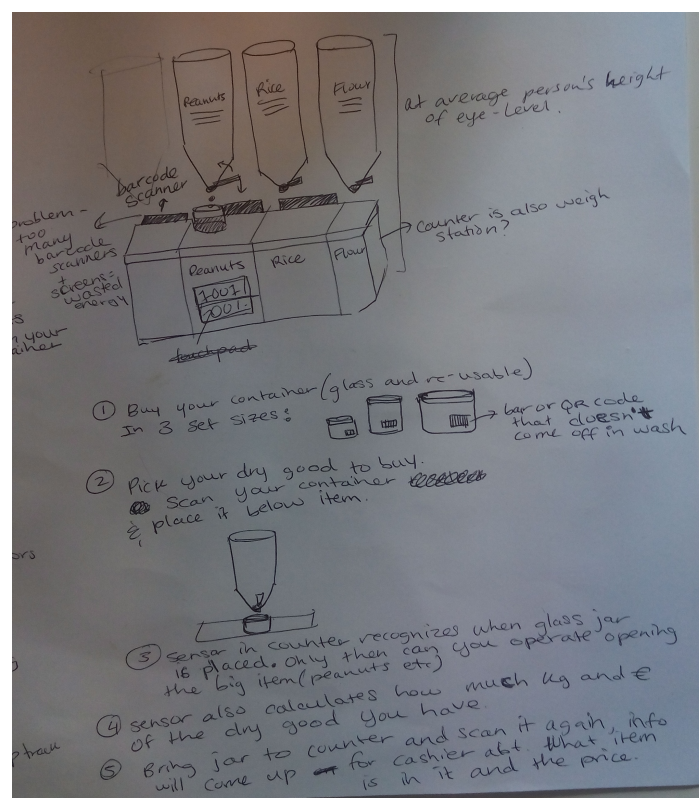 Peanuts
Rice
Flour
at average person's height
of eye-level.
barcode
scanner
problem -
too
many
barcode
scanners
+
screens=
wasted
energy
Counter is also weigh
station?
Peanuts
Rice
Flour
your
touchpad
① Buy your container (glass and re-usable)
In 3 set sizes:
bar or QR code
that doesn't
come off in wash
② Pick your dry good to buy.
Scan your container
& place it below item.
③ sensor in counter recognizes when glass jar
is placed. Only then can you operate opening
the big item (peanuts etc)
④ sensor also calculates how much kg and €
of the dry good you have.
⑤ Bring jar to counter and scan it again, info
will come up for cashier abt. what item
is in it and the price.